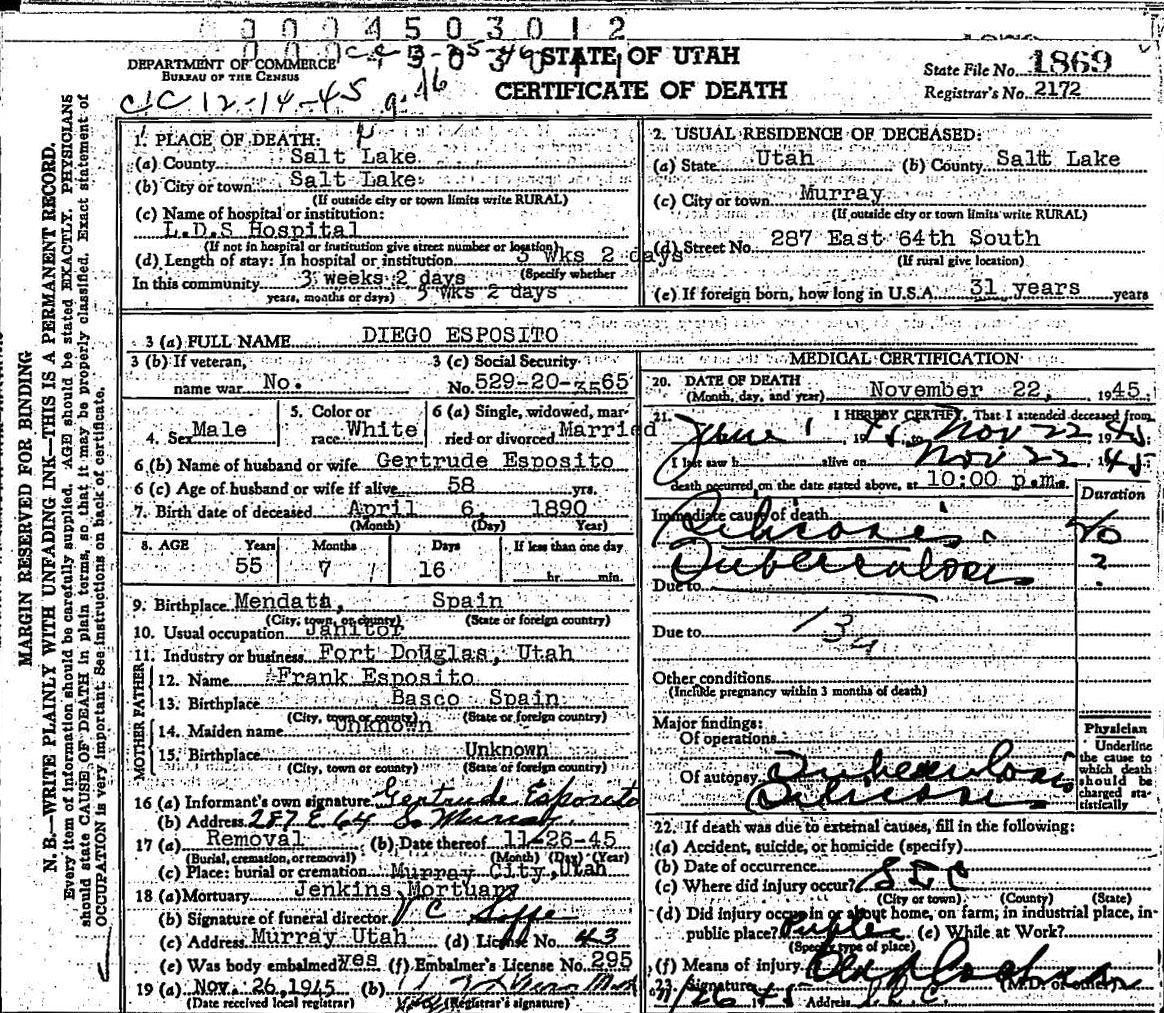 0 0 0 4 5 0 3 0 1 2
DEPARTMENT OF COMMERCE
BUREAU OF THE CENSUS
CIC 12-14-45
STATE OF UTAH
CERTIFICATE OF DEATH
State File No. 1869
Registrar's No. 2172
MARGIN RESERVED FOR BINDING
N. B.—WRITE PLAINLY WITH UNFADING INK—THIS IS A PERMANENT RECORD.
Every item of information should be carefully supplied. AGE should be stated EXACTLY. PHYSICIANS
should state CAUSE OF DEATH in plain terms, so that it may be properly classified. Exact statement of
OCCUPATION is very important. See instructions on back of certificate.
1. PLACE OF DEATH:
(a) County Salt Lake
(b) City or town Salt Lake
(If outside city or town limits write RURAL)
(c) Name of hospital or institution:
L.D.S Hospital
(If not in hospital or institution give street number or location)
(d) Length of stay: In hospital or institution 3 Wks 2 days
(Specify whether
In this community 3 weeks 2 days
years, months or days) 3 wks 2 days
2. USUAL RESIDENCE OF DECEASED:
(a) State Utah (b) County Salt Lake
(c) City or town Murray
(If outside city or town limits write RURAL)
(d) Street No. 287 East 64th South
(If rural give location)
(e) If foreign born, how long in U.S.A. 31 years years
3 (a) FULL NAME DIEGO ESPOSITO
3 (b) If veteran, name war No.
3 (c) Social Security No. 529-20-3565
4. Sex Male
5. Color or race White
6 (a) Single, widowed, married or divorced Married
6 (b) Name of husband or wife Gertrude Esposito
6 (c) Age of husband or wife if alive 58 yrs.
7. Birth date of deceased April 6, 1890
(Month) (Day) Year)
8. AGE Years Months Days If less than one day
55 7 16 hr. min.
9. Birthplace Mendata, Spain
(City, town, or county) (State or foreign country)
10. Usual occupation Janitor
11. Industry or business Fort Douglas, Utah
FATHER
12. Name Frank Esposito
13. Birthplace Basco Spain
(City, town or county) (State or foreign country)
MOTHER
14. Maiden name Unknown
15. Birthplace Unknown
(City, town or county) (State or foreign country)
16 (a) Informant's own signature Gertrude Esposito
(b) Address 287 E 64 So Murray
17 (a) Removal (b) Date thereof 11-26-45
(Burial, cremation, or removal) (Month) (Day) (Year)
(c) Place: burial or cremation Murray City, Utah
18 (a) Mortuary Jenkins Mortuary
(b) Signature of funeral director
(c) Address Murray Utah (d) License No. 43
(e) Was body embalmed yes (f) Embalmer's License No. 295
19 (a) Nov. 26, 1945 (b)
(Date received local registrar) (Registrar's signature)
MEDICAL CERTIFICATION
20. DATE OF DEATH November 22, 1945
(Month, day, and year)
21. I HEREBY CERTIFY, That I attended deceased from
June 1, 1945 to Nov 22 1945
I last saw h alive on Nov 22 1945
death occurred on the date stated above, at 10:00 p.m.
Duration
Immediate cause of death
Silicosis
Tuberculosis ?
Due to
Due to
Other conditions
(Include pregnancy within 3 months of death)
Major findings:
Of operations
Of autopsy Tuberculosis
Silicosis
Physician
Underline the cause to which death should be charged statistically
22. If death was due to external causes, fill in the following:
(a) Accident, suicide, or homicide (specify)
(b) Date of occurrence
(c) Where did injury occur?
(City or town) (County) (State)
(d) Did injury occur in or about home, on farm, in industrial place, in public place? (e) While at Work?
(Specify type of place)
(f) Means of injury
23. Signature (M.D. or other)
11/26 45 Address